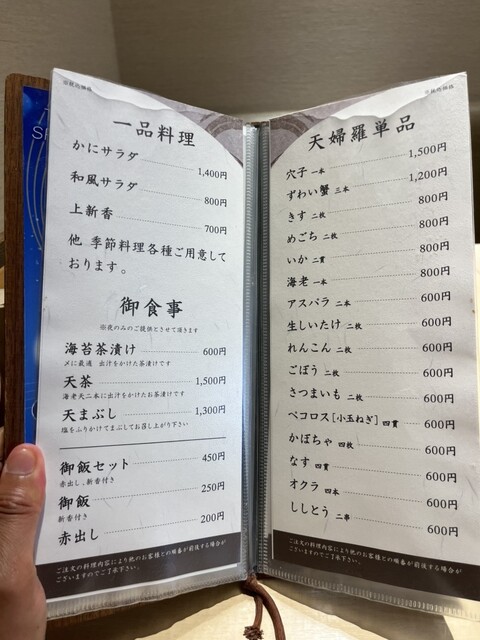 ※税込価格
一品料理
かにサラダ 1,400円
和風サラダ 800円
上新香 700円
他 季節料理各種ご用意して
おります。
御食事
※夜のみのご提供とさせて頂きます
海苔茶漬け 600円
〆に最適 出汁をかけた茶漬けです
天茶 1,500円
海老天二本に出汁をかけたお茶漬けです
天まぶし 1,300円
塩をふりかけてまぶしてお召し上がり下さい
御飯セット 450円
赤出し、新香付き
御飯 250円
新香付き
赤出し 200円
ご注文の料理内容により他のお客様との順番が前後する場合が
ございますのでご了承下さい。
※税込価格
天婦羅単品
穴子 一本 1,500円
ずわい蟹 三本 1,200円
きす 二枚 800円
めごち 二枚 800円
いか 二貫 800円
海老 一本 800円
アスパラ 二本 600円
生しいたけ 二枚 600円
れんこん 二枚 600円
ごぼう 二枚 600円
さつまいも 二枚 600円
ペコロス[小玉ねぎ] 四貫 600円
かぼちゃ 四枚 600円
なす 四貫 600円
オクラ 四本 600円
ししとう 二串 600円
ご注文の料理内容により他のお客様との順番が前後する場合が
ございますのでご了承下さい。